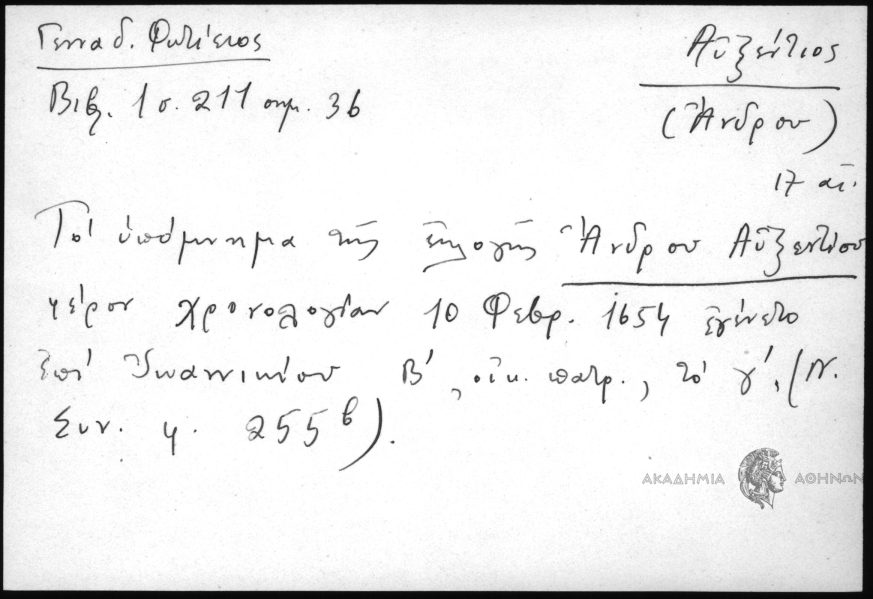 Γενναδ. Φωτίειος
Βιβλ. 1 σ. 211 σημ. 36
Αὐξέντιος
(Ἄνδρου)
17 αἰ.
Τό ὑπόμνημα τῆς ἐκλογῆς Ἄνδρου Αὐξεντίου
φέρον χρονολογίαν 10 Φεβρ. 1654 ἐγένετο
ἐπί Ἰωαννικίου Β', οἰκ. πατρ., τό γ'. (Ν.
Συν. φ. 255β).
ΑΚΑΔΗΜΙΑ ΑΘΗΝΩΝ